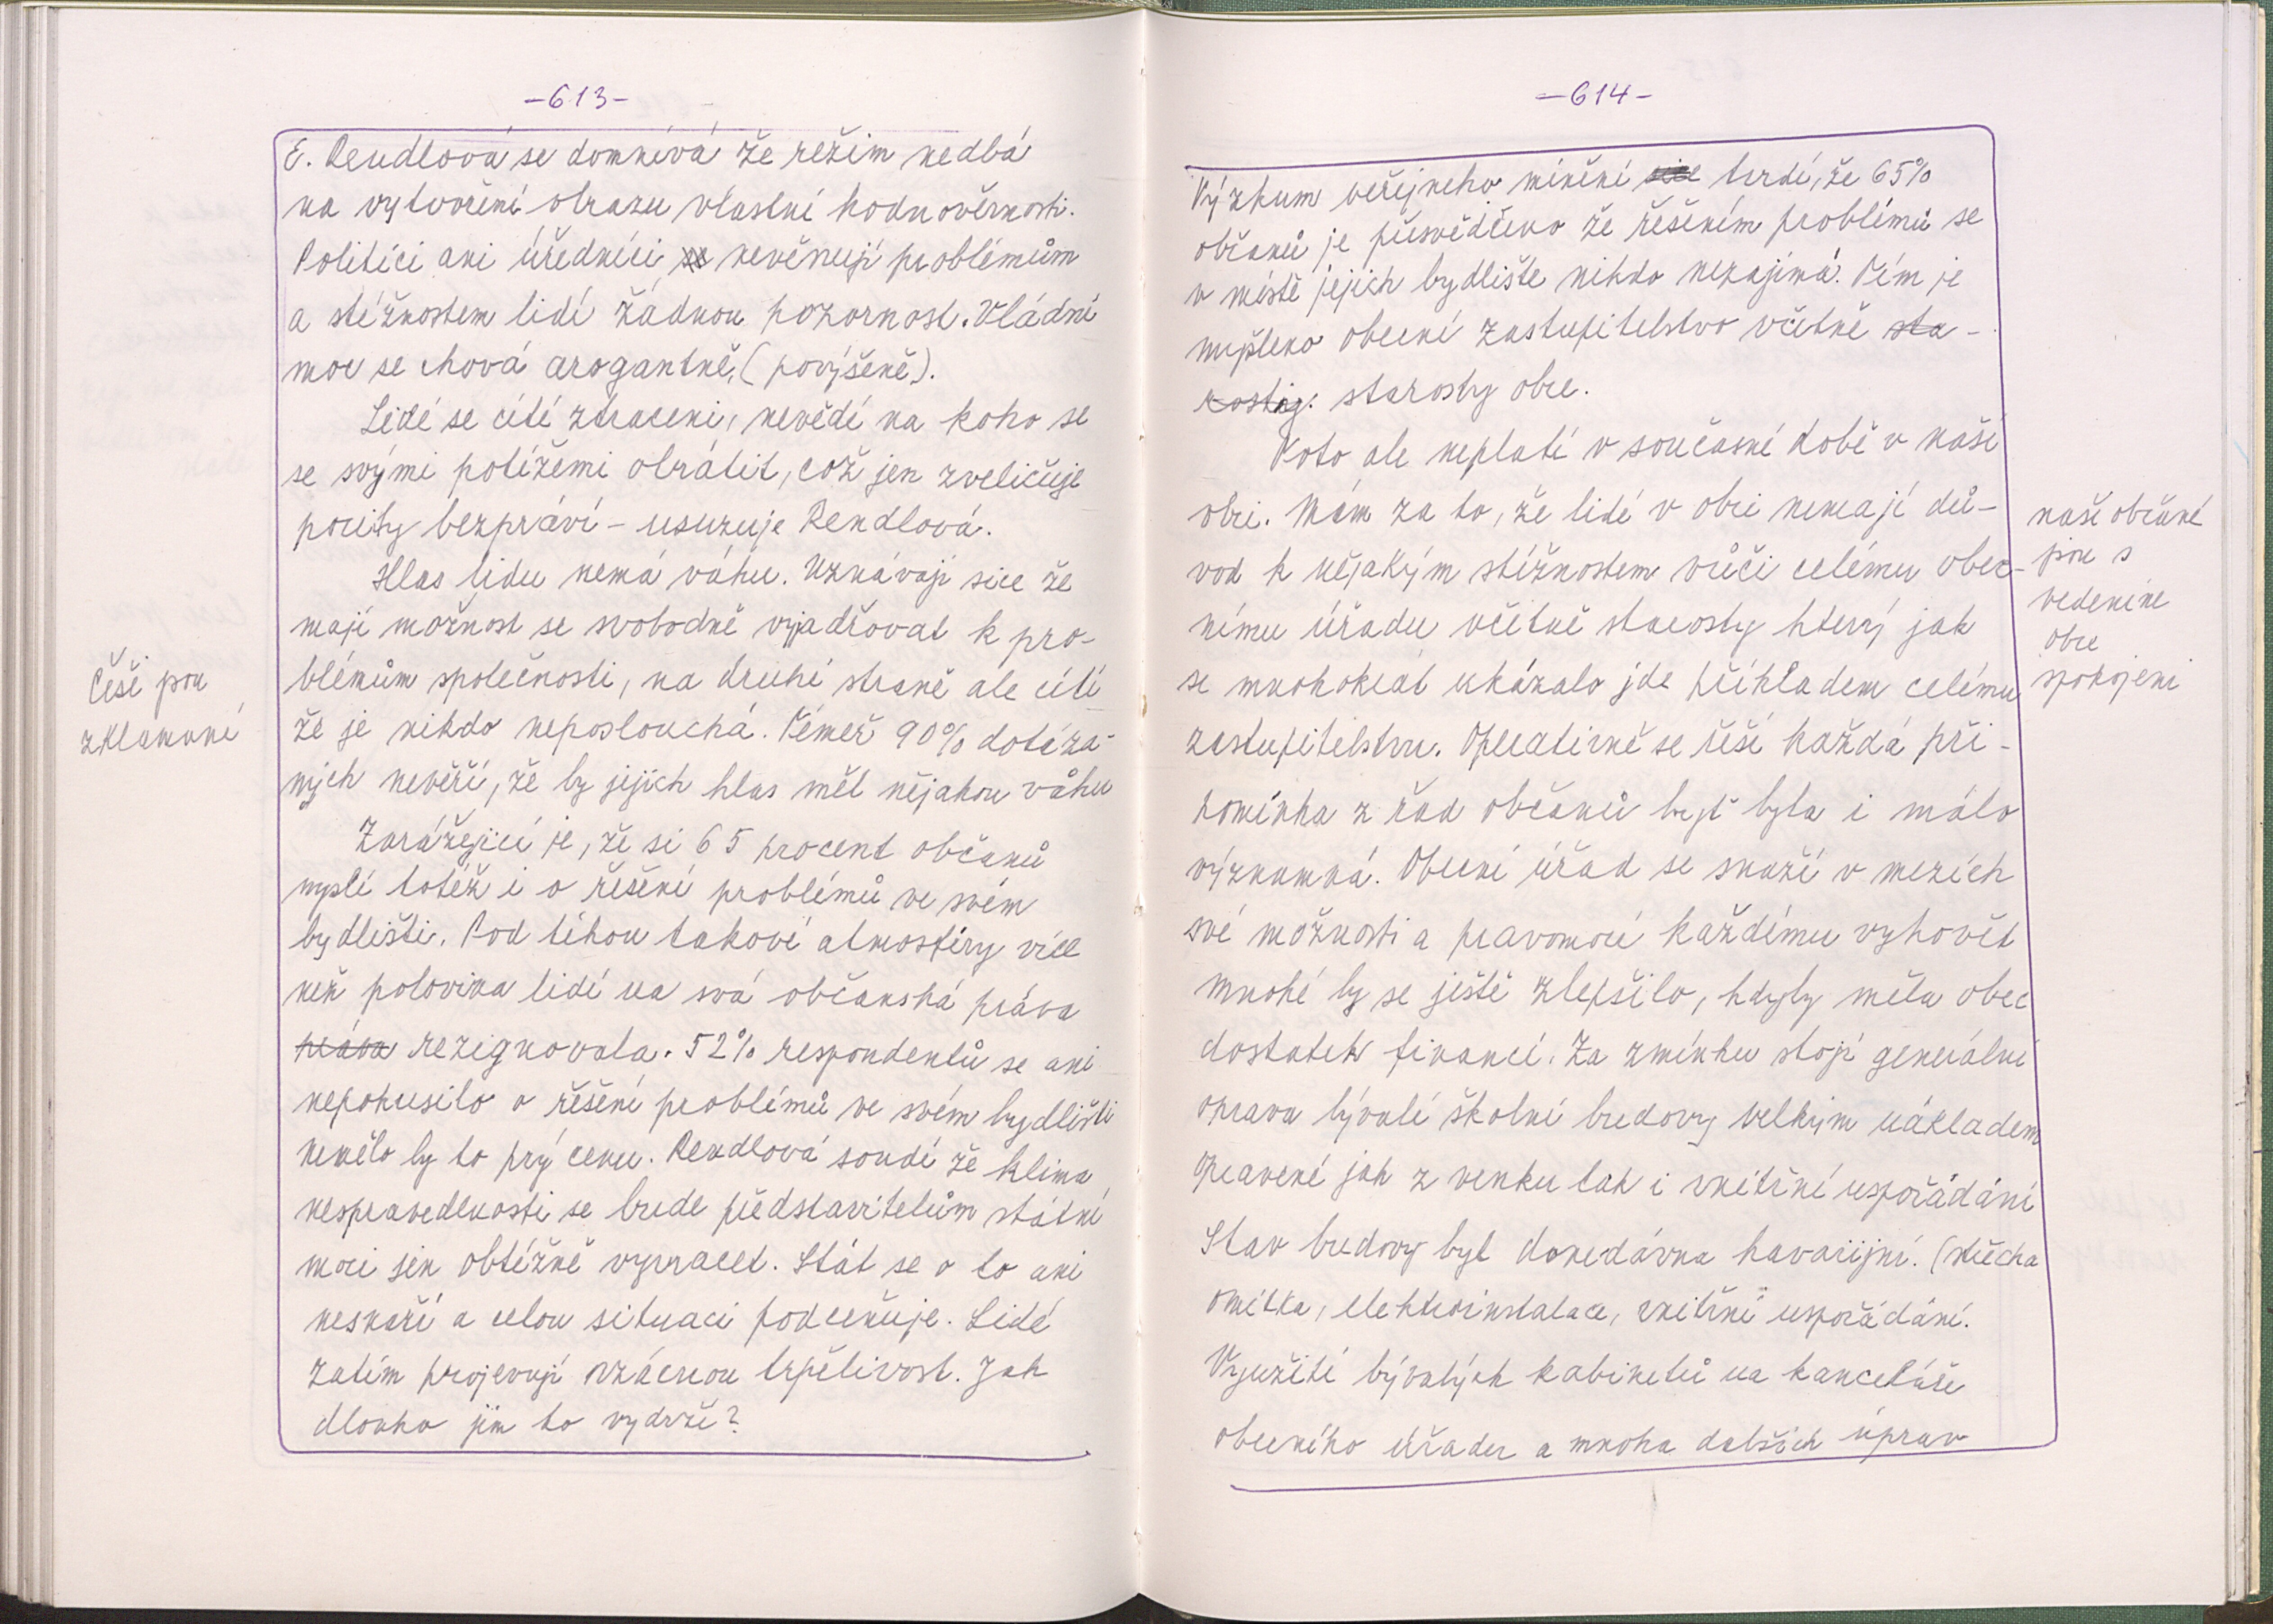 -613-
E. Rendlová se domnívá že režim nedbá
na vytvoření obrazu vlastní hodnověrnosti.
Politici ani úředníci se nevěnují problémům
a stížnostem lidí žádnou pozornost. Vládní
moc se chová arogantně, (povýšeně).
Lidé se cítí ztraceni, nevědí na koho se
se svými potížemi obrátit, což jen zveličuje
pocity bezpráví - usuzuje Rendlová.
Hlas lidu nemá váhu. Uznávají sice že
mají možnost se svobodně vyjadřovat k pro-
blémům společnosti, na druhé straně ale cítí
že je nikdo neposlouchá. Téměř 90% dotáza-
ných nevěří, že by jejich hlas měl nějakou váhu
Zarážející je, že si 65 procent občanů
myslí totéž i o řešení problémů ve svém
bydlišti. Pod tíhou takové atmosféry více
než polovina lidí na svá občanská práva
práva rezignovala. 52% respondentů se ani
nepokusilo o řešení problémů ve svém bydlišti
nemělo by to prý cenu. Rendlová soudí že klima
nespravedlnosti se bude představitelům státní
moci jen obtížně vyvracet. Stát se o to ani
nesnaží a celou situaci podceňuje. Lidé
zatím projevují vzácnou trpělivost. Jak
dlouho jim to vydrží?
Češi jsou
zklamaní
-614-
Výzkum veřejneho mínění sice tvrdí, že 65%
občanů je přesvědčeno že řešením problémů se
v místě jejich bydliště nikdo nezajímá. Tím je
myšleno obecní zastupitelstvo včetně sta-
rosty. starosty obce.
Toto ale neplatí v současné době v naší
obci. Mám za to, že lidé v obci nemají dů-
vod k nějakým stížnostem vůči celému obec-
nímu úřadu včetně starosty který jak
se mnohokrát ukázalo jde příkladem celému
zastupitelstvu. Operativně se řeší každá při-
pomínka z řad občanů byť byla i málo
významná. Obecní úřad se snaží v mezích
své možnosti a pravomoci každému vyhovět
mnohé by se ještě zlepšilo, kdyby měla obec
dostatek financí. Za zmínku stojí generální
oprava bývalé školní budovy velkým nákladem
opravené jak z venku tak i vnitřní uspořádání
Stav budovy byl donedávna havarijní. (střecha
omítka, elektroinstalace, vnitřní uspořádání.
Využití bývalých kabinetů na kanceláře
obecního úřadu a mnoha dalších úprav
naši občané
jsou s
vedením
obce
spokojeni